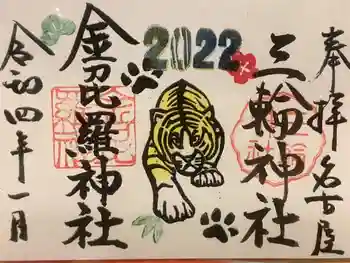 奉拝 名古屋
三輪神社
2022
金毘羅神社
令和四年一月